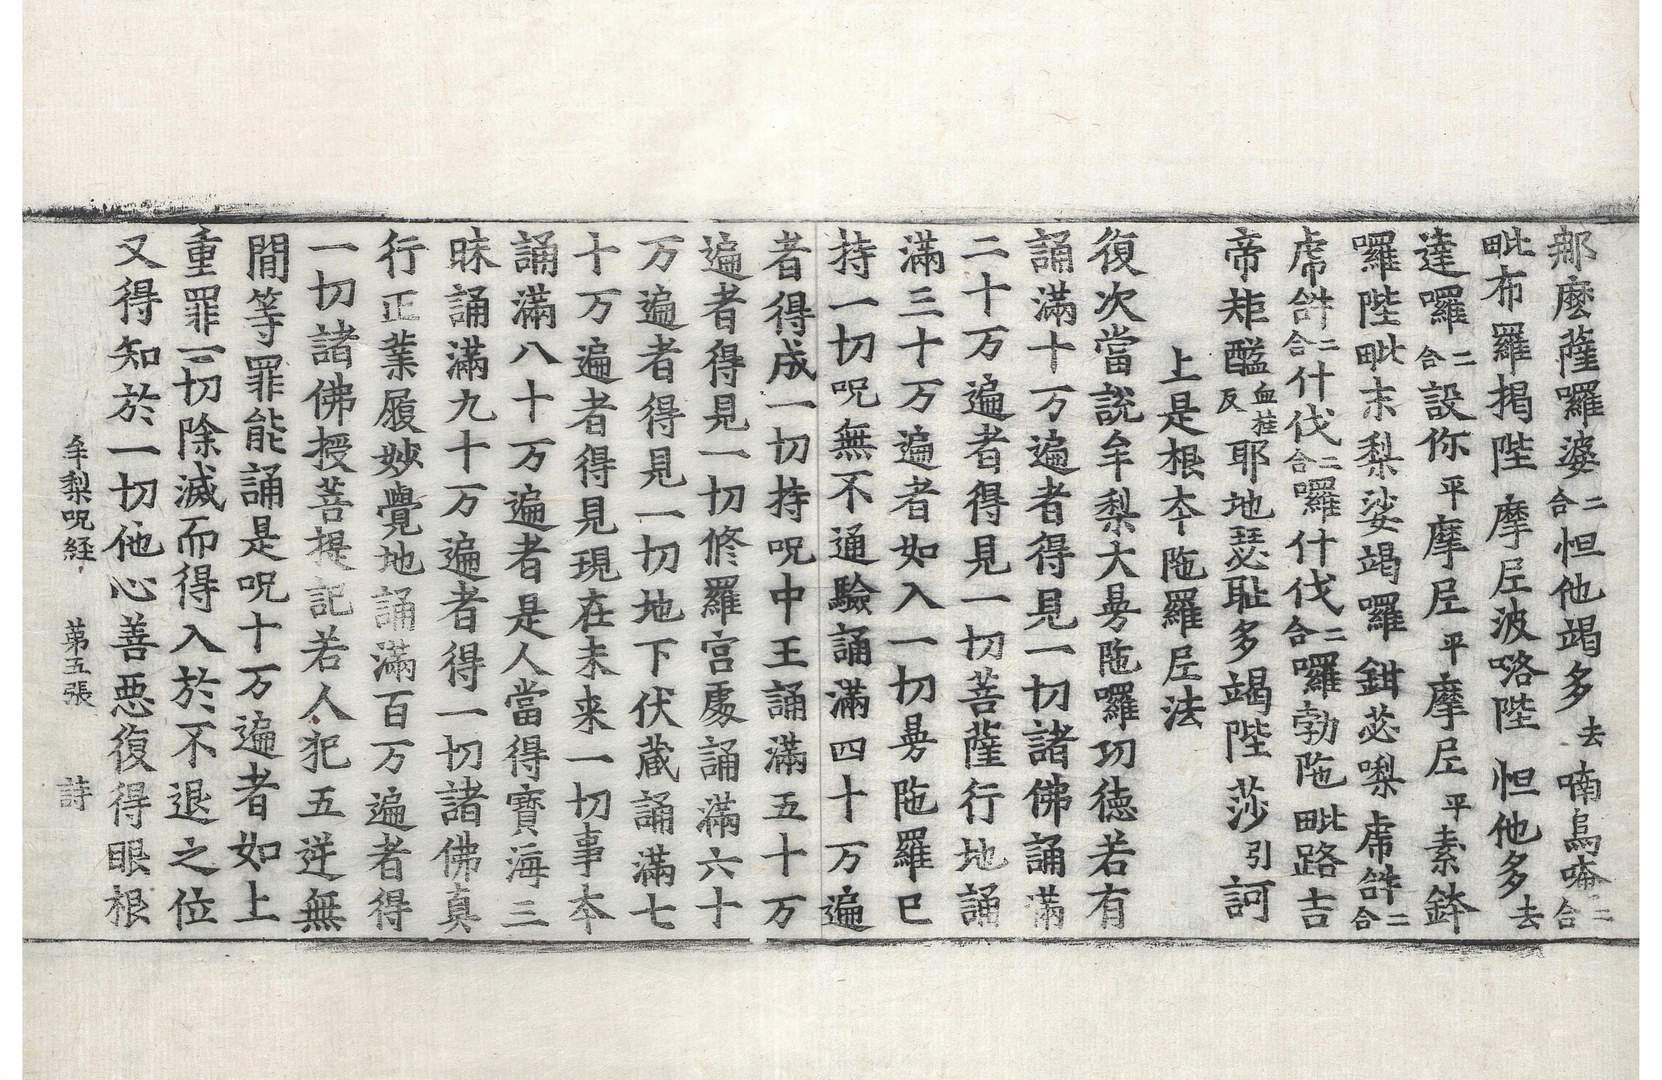 那麽薩囉婆二合怛他竭多去喃烏唵二合
毗布羅揭陛摩𡰱波咯陛怛他多去
達囉二合設你平摩𡰱平摩𡰱平素鉢
囉陛毗末梨娑竭囉鉗苾㘑虎𤙖二合
虎𤙖二合什伐二合囉什伐二合囉勃陁毗路吉
帝矩𧫦血桂反耶地瑟耻多竭陛莎引訶
上是根夲陁羅𡰱法
復次當說牟梨大曼陁囉功德若有
誦滿十万遍者得見一切諸佛誦滿
二十万遍者得見一切菩薩行地誦
滿三十万遍者如入一切曼陁羅已
持一切呪無不通驗誦滿四十万遍
者得成一切持呪中王誦滿五十万
遍者得見一切修羅宮處誦滿六十
万遍者得見一切地下伏藏誦滿七
十万遍者得見現在未来一切事夲
誦滿八十万遍者是人當得寶海三
昧誦滿九十万遍者得一切諸佛真
行正業履妙覺地誦滿百万遍者得
一切諸佛授菩提記若人犯五逆無
閒等罪能誦是呪十万遍者如上
重罪一切除滅而得入於不退之位
又得知於一切他心善惡復得眼根
牟梨呪経 第五張 詩